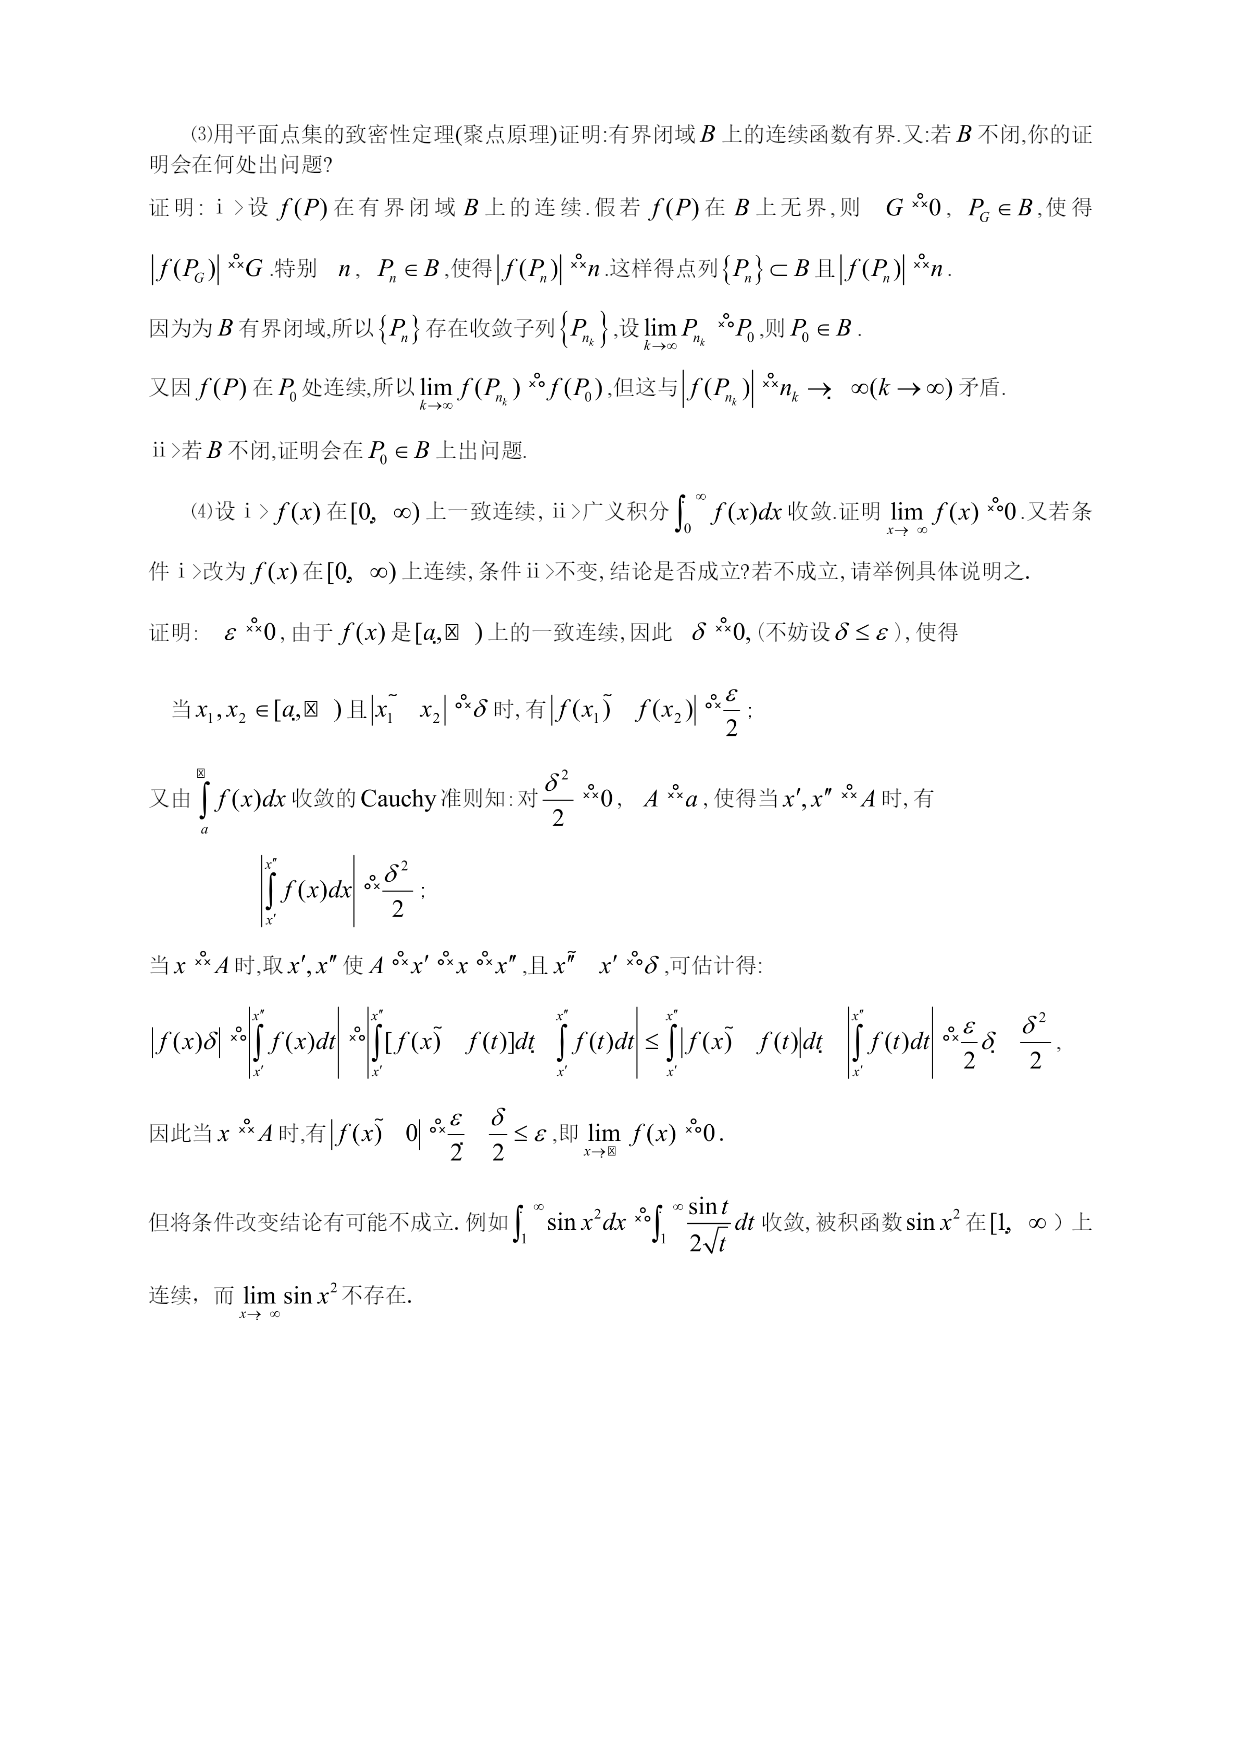 ⑶用平面点集的致密性定理(聚点原理)证明:有界闭域 B 上的连续函数有界.又:若 B 不闭,你的证
明会在何处出问题?
证明:ⅰ>设 f(P) 在有界闭域 B 上的连续.假若 f(P) 在 B 上无界,则 G 0, P_G ∈ B,使得
|f(P_G)| G.特别 n, P_n ∈ B,使得|f(P_n)| n.这样得点列{P_n} ⊂ B 且|f(P_n)| n.
因为为 B 有界闭域,所以{P_n}存在收敛子列{P_{n_k}},设 lim_{k→∞} P_{n_k} P_0,则 P_0 ∈ B.
又因 f(P) 在 P_0 处连续,所以 lim_{k→∞} f(P_{n_k}) f(P_0),但这与|f(P_{n_k})| n_k → ∞(k → ∞) 矛盾.
ⅱ>若 B 不闭,证明会在 P_0 ∈ B 上出问题.
⑷设ⅰ> f(x) 在[0, ∞) 上一致连续,ⅱ>广义积分 ∫_0^∞ f(x)dx 收敛.证明 lim_{x→ ∞} f(x) 0.又若条
件ⅰ>改为 f(x) 在[0, ∞) 上连续,条件ⅱ>不变,结论是否成立?若不成立,请举例具体说明之.
证明: ε 0,由于 f(x) 是[a, ) 上的一致连续,因此 δ 0,(不妨设 δ ≤ ε),使得
当 x_1, x_2 ∈ [a, ) 且|x_1 ~ x_2| δ 时,有|f(x_1) ~ f(x_2)| ε/2;
又由 ∫_a f(x)dx 收敛的 Cauchy 准则知:对 δ²/2 0, A a,使得当 x′, x″ A 时,有
|∫_{x′}^{x″} f(x)dx| δ²/2;
当 x A 时,取 x′, x″ 使 A x′ x x″,且 x″ ~ x′ δ,可估计得:
|f(x)δ| |∫_{x′}^{x″} f(x)dt| |∫_{x′}^{x″} [f(x) ~ f(t)]dt ∫_{x′}^{x″} f(t)dt| ≤ ∫_{x′}^{x″} |f(x) ~ f(t)|dt |∫_{x′}^{x″} f(t)dt| ε/2 δ δ²/2,
因此当 x A 时,有|f(x) ~ 0| ε/2 δ/2 ≤ ε,即 lim_{x→} f(x) 0.
但将条件改变结论有可能不成立.例如 ∫_1^∞ sin x²dx ∫_1^∞ sin t/(2√t) dt 收敛,被积函数 sin x² 在[1, ∞）上
连续，而 lim_{x→ ∞} sin x² 不存在.